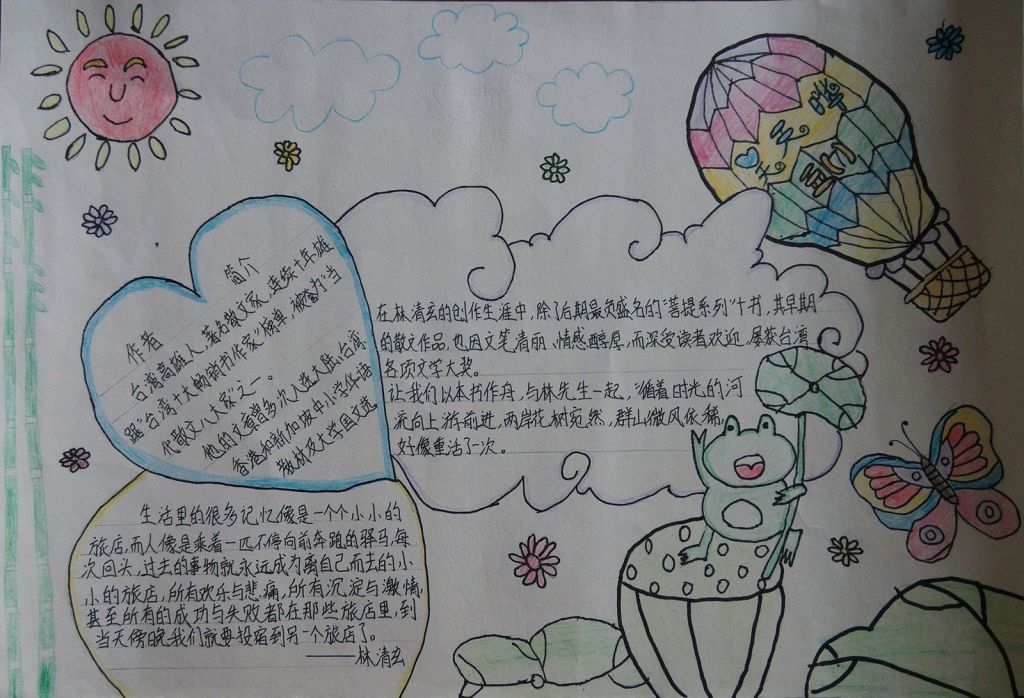 作者
简介
台湾高雄人,著名散文家,连续十年雄
踞"台湾十大畅销书作家"榜单,被誉为"当
代散文八大家"之一。
他的文章曾多次入选大陆、台湾、
香港和新加坡中小学华语
教材及大学国文选
在林清玄的创作生涯中,除了后期最负盛名的"菩提系列"十书,其早期
的散文作品,也因文笔清丽、情感醇厚,而深受读者欢迎,屡获台湾
各项文学大奖。
让我们以本书作舟,与林先生一起,循着时光的河
流向上游前进,两岸花树宛然,群山微风依稀,
好像重活了一次。
生活里的很多记忆像是一个个小小的
旅店,而人像是乘着一匹不停向前奔跑的驿马,每
次回头,过去的事物就永远成为离自己而去的小
小的旅店,所有欢乐与悲痛,所有沉淀与激情,
甚至所有的成功与失败都在那些旅店里,到
当天傍晚,我们就要投宿到另一个旅店了。
——林清玄